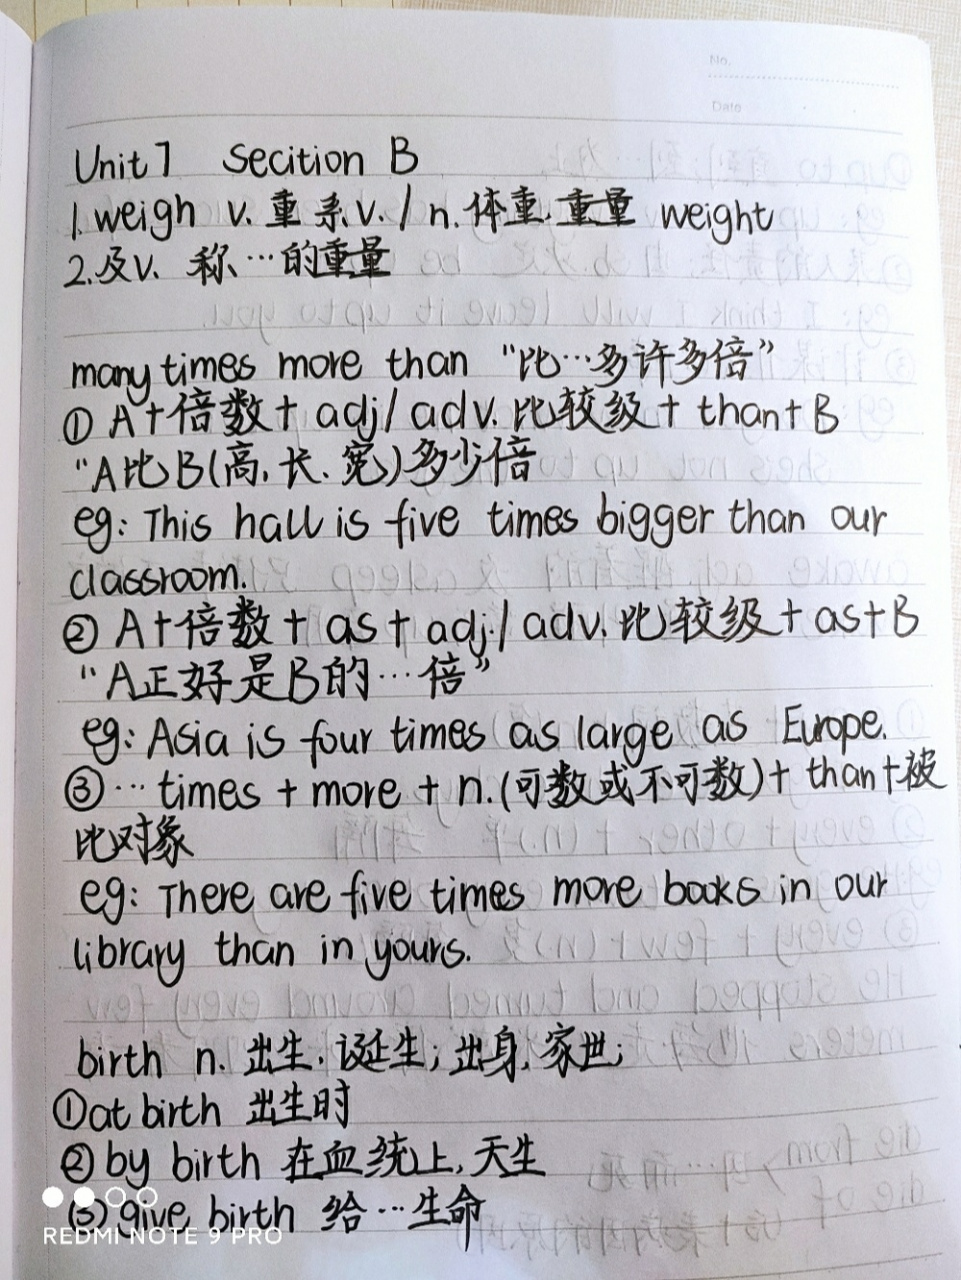 No.
Date
Unit 7 Secition B
1. weigh v. 重 系v. / n. 体重, 重量 weight
2. 及v. 称…的重量
many times more than “比…多许多倍”
① A+倍数+ adj/ adv. 比较级+ than+B
“A比B(高, 长, 宽)多少倍
eg: This hall is five times bigger than our
classroom.
② A+倍数+ as+ adj./ adv. 比较级+ as+B
“A正好是B的…倍”
eg: Asia is four times as large as Europe.
③… times + more + n.(可数或不可数)+ than+被
比对象
eg: There are five times more books in our
library than in yours.
birth n. 出生, 诞生; 出身, 家世;
①at birth 出生时
② by birth 在血统上, 天生
③ give birth 给…生命
REDMI NOTE 9 PRO